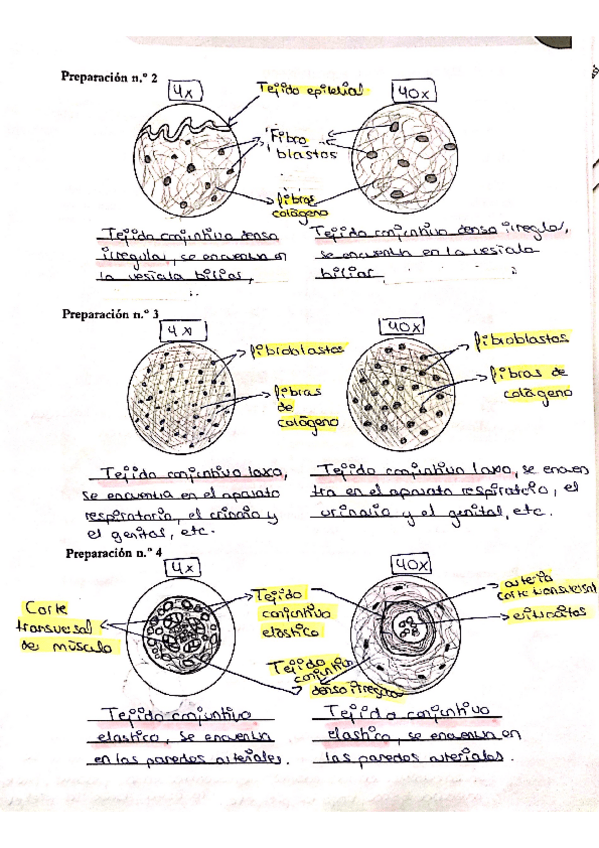 Preparación n.º 2
4x
Tejido epitelial
40x
Fibro
blastos
fibras
colágeno
Tejido conjuntivo denso
irregular, se encuentra en
la vesícula biliar,
Tejido conjuntivo denso irregular,
se encuentra en la vesícula
biliar
Preparación n.º 3
4x
40x
fibroblastos
fibras
de
colágeno
fibroblastos
fibras de
colágeno
Tejido conjuntivo laxo,
se encuentra en el aparato
respiratorio, el urinario y
el genital, etc.
Tejido conjuntivo laxo, se encuen
tra en el aparato respiratorio, el
urinario y el genital, etc.
Preparación n.º 4
4x
40x
Corte
transversal
de músculo
Tejido
conjuntivo
elástico
Tejido
conjuntivo
denso irregular
arteria
corte transversal
eritrocitos
Tejido conjuntivo
elastico, se encuentra
en las paredes arteriales.
Tejido conjuntivo
elastico, se encuentra en
las paredes arteriales.